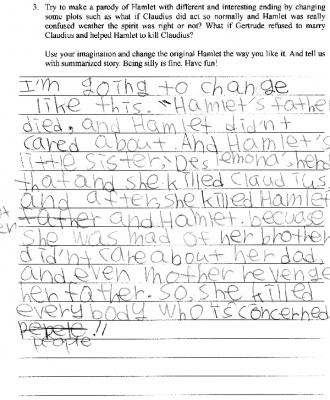 3. Try to make a parody of Hamlet with different and interesting ending by changing
some plots such as what if Claudius did act so normally and Hamlet was really
confused weather the spirit was right or not? What if Gertrude refused to marry
Claudius and helped Hamlet to kill Claudius?
Use your imagination and change the original Hamlet the way you like it. And tell us
with summarized story. Being silly is fine. Have fun!
I'm going to change
like this. "Hamlet's fathe
died, and Hamlet didn't
cared about. And Hamlet's
little sister, Deslemona, here
that and she killed Claudius,
and after she killed Hamlet
father and Hamlet. becuase
she was mad of her brother
did'nt care about her dad,
and even mother revenge
her father. So, she killed
everybody who is concerned
pepele !!
people